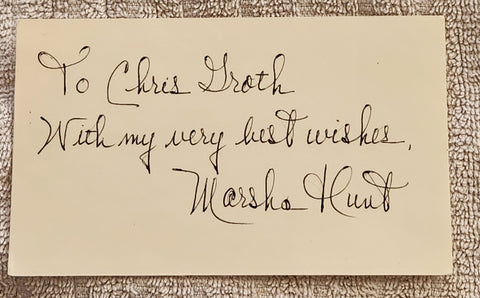 To Chris Groth
With my very best wishes,
Marsha Hunt